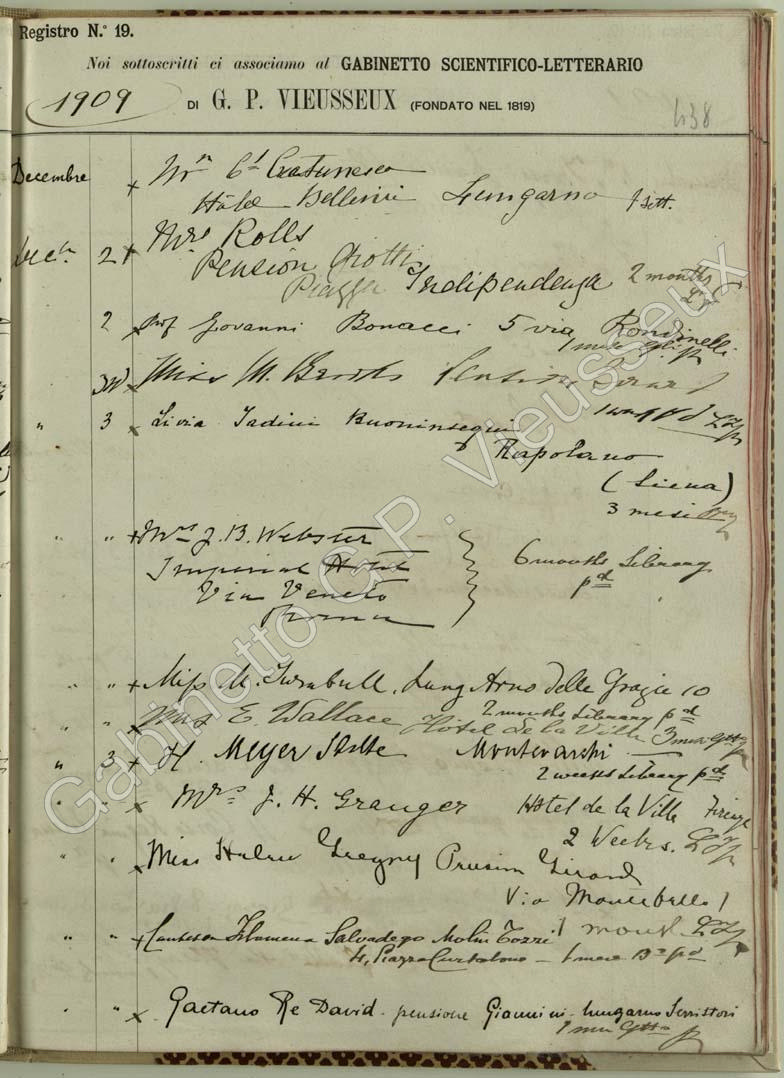 Registro N.° 19.
Noi sottoscritti ci associamo al GABINETTO SCIENTIFICO-LETTERARIO
1909 DI G. P. VIEUSSEUX (FONDATO NEL 1819)
438
Decembre
Hôtel Bellini Lungarno 1 sett.
Dec. 2 Mrs Rolls
Pension Giotti
Piazza Indipendenza 2 months
2 Prof Govanni Bonacci 5 via Rondinelli
1 mese
3rd Miss M. Pension
" 3 Livia Tadini Buoninsegni
Rapolano
(Siena)
3 mesi
" " Mrs J. B. Webster
Imperial Hotel 6 months Library
Via Veneto pd
Roma
" " Miss M. Turnbull. Lung Arno delle Grazie 10
2 months Library pd
" " Miss E. Wallace Hôtel de la Ville
" 3 H. Meyer Montevarchi
2 weeks Library pd
" " Mrs. J. H. Granger Hôtel de la Ville Firenze
2 Weeks.
" " Miss Girard
Via Montebello 1
1 mont
" " Contessa Filomena Salvadego Molin Tozzi
4, Piazza Curtatone - 1 mese pd
" " Gaetano Re David - pensione Giannini - lungarno Serristori
Gabinetto G.P. Vieusseux